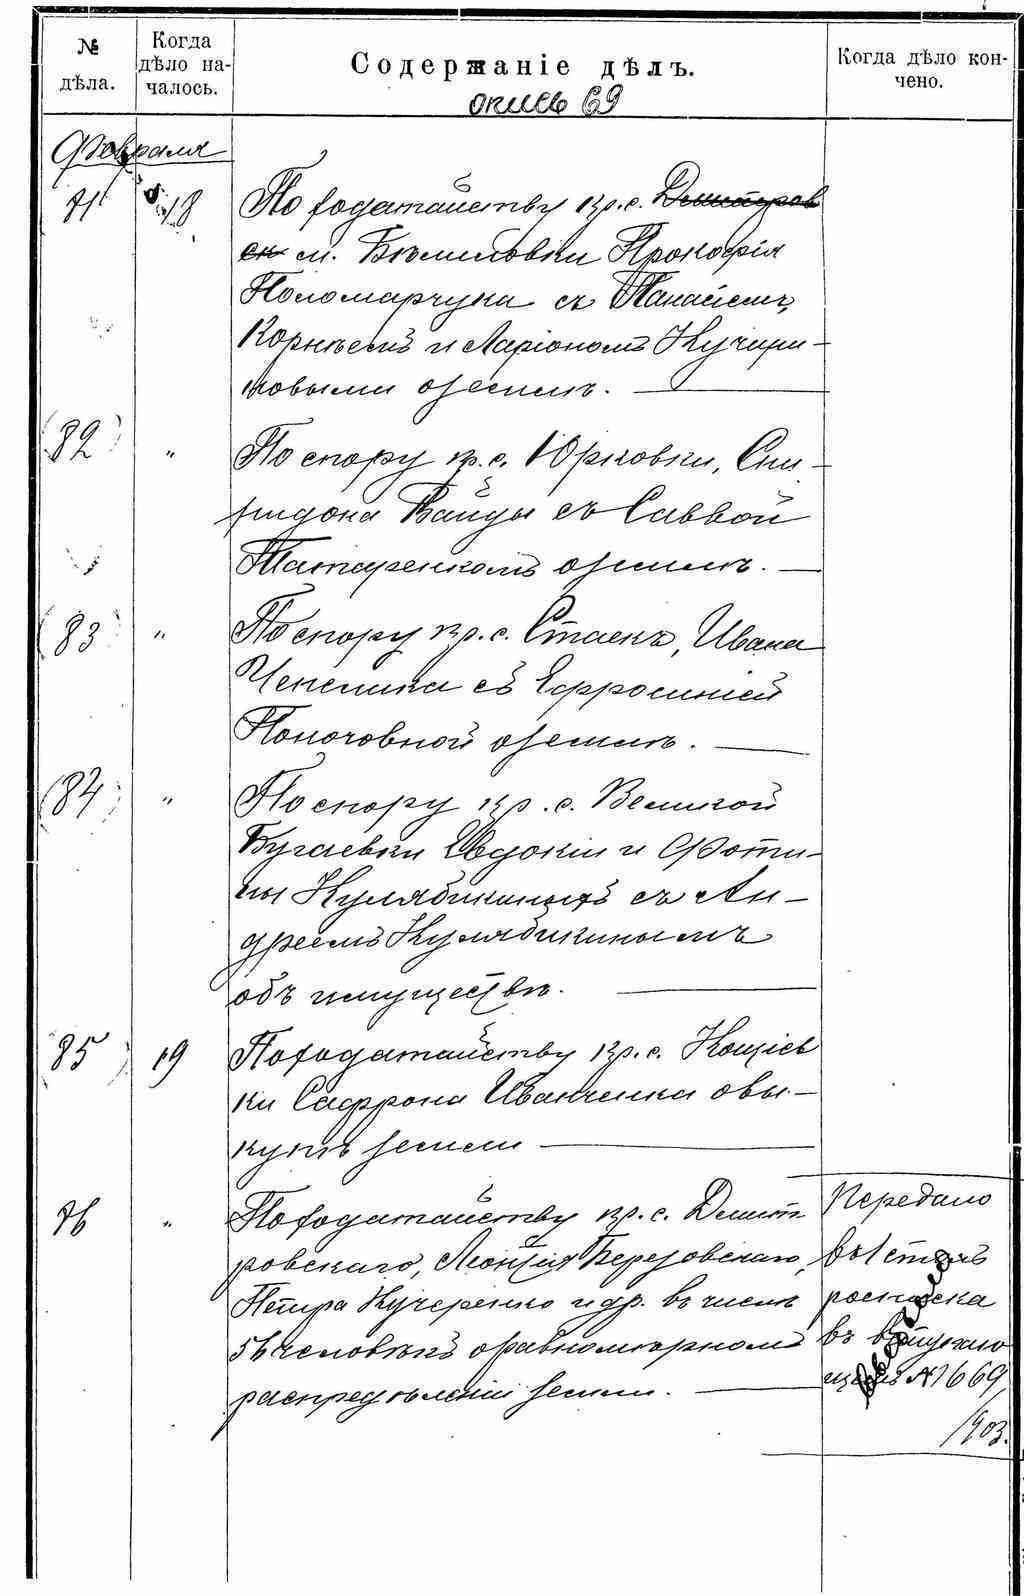 № дѣла.
Когда дѣло началось.
Содержаніе дѣлъ.
Когда дѣло кончено.
опись 69
Февраля
81 18 По ходатайству кр. с. Дмитров
ск м. Бѣлиловки Прокофія
Поломарчука съ Панасомъ,
Корнѣемъ и Ларіономъ Кучери-
ковыми о землѣ.
82 " По спору кр. с. Юрковки, Спи-
ридона Вайды съ Саввой
Татаренкомъ о землѣ.
83 " По спору кр. с. Стаекъ, Ивана
съ Ефросиніей
о землѣ.
84 " По спору кр. с. Великой
Бугаевки Евдокіи и Фоти-
ны Кулябкиныхъ съ Ан-
дреемъ Кулябкинымъ
объ имуществѣ.
85 19 По ходатайству кр. с. Кощіев
ки Сафрона Иванченка о вы-
купѣ земли
86 " По ходатайству кр. с. Дмит
ровскаго, Леонтія Березовскаго,
Петра Кучеренко и др. въ числѣ
56 человѣкъ о равномѣрномъ
распредѣленіи земли.
Передано
въ 1 столъ
росписка
въ
№ 1669
1903.